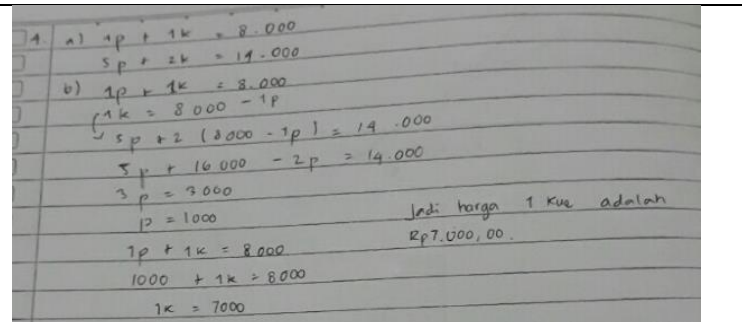 4. a) 1p + 1k = 8.000
5p + 2k = 19.000
b) 1p + 1k = 8.000
1k = 8000 - 1p
5p + 2 (8000 - 1p) = 19.000
5p + 16000 - 2p = 19.000
3p = 3000
p = 1000
1p + 1k = 8000
1000 + 1k = 8000
1k = 7000
Jadi harga 1 kue adalah
Rp7.000,00.